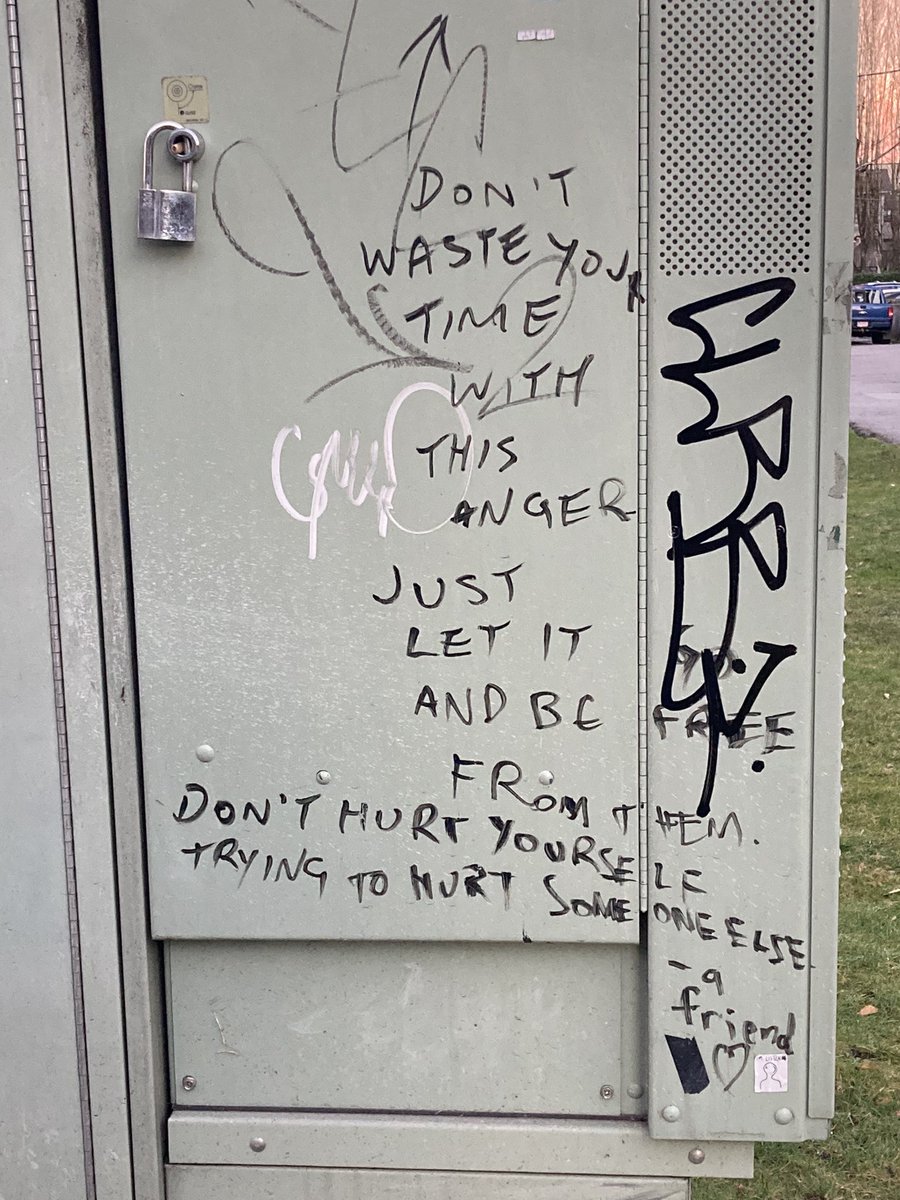 DON'T
WASTE YOUR
TIME
WITH
THIS
ANGER
JUST
LET IT GO.
AND BE FREE
FROM THEM.
DON'T HURT YOURSELF
TRYING TO HURT SOMEONE ELSE
- a
friend